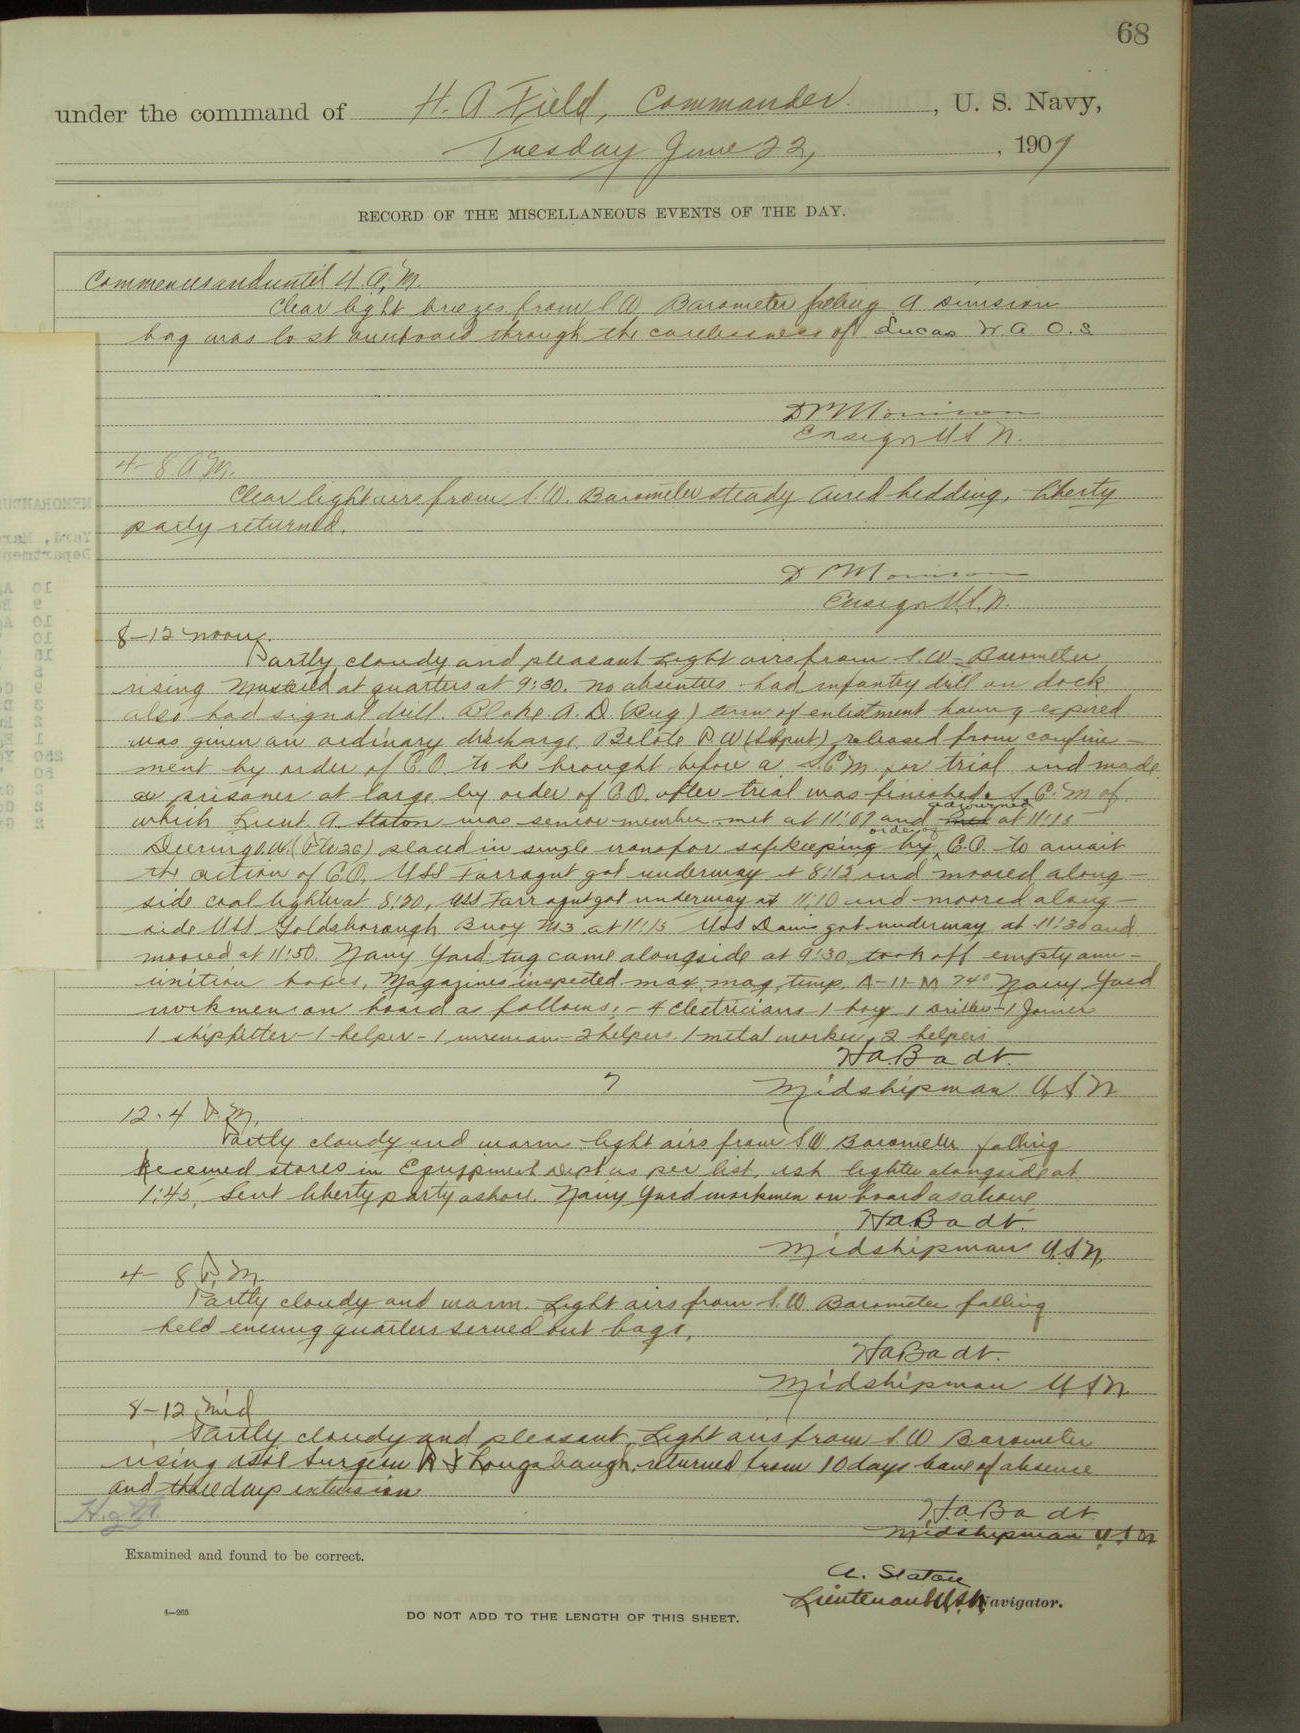 68
under the command of H. A Field, Commander , U. S. Navy,
Tuesday June 22, , 1909
RECORD OF THE MISCELLANEOUS EVENTS OF THE DAY.
Commences and until 4 A.M.
Clear light breezes from S W Barometer falling A Division
bag was lost overboard through the carelessness of Lucas W. A O. S
Ensign U S N.
4-8 A M.
Clear light airs from S. W. Barometer steady Aired bedding, Liberty
party returned.
Ensign U. S. N.
8-12 noon.
Partly cloudy and pleasant Light airs from S. W- Barometer
rising Mustered at quarters at 9:30. No absentees had infantry drill on dock
also had signal drill. Blake A. D. (Bug) term of enlistment having expired
was given an ordinary discharge. Belote P W released from confine-
ment by order of C.O. to be brought before a S.C.M. for trial and made
a prisoner at large by order of C.O. after trial was finished. S.C.M of
which Lieut. A. Staton was senior member met at 11:07 and adjourned at 11:15
placed in single irons for safekeeping by order of C.O. to await
the action of C.O. USS Farragut got underway at 8:12 and moored along-
side coal lighter at 8:20, USS Farragut got underway at 11:10 and moored along-
side USS Goldsborough Buoy at 11:15 USS Davis got underway at 11:30 and
moored at 11:50. Navy Yard tug came alongside at 9:30 took off empty amm-
unition boxes, Magazines inspected max. mag. temp. A-11-M 74° Navy Yard
workmen on board as follows: - 4 Electricians - 1 boy 1 Driller - 1 Joiner
1 shipfitter - 1 helper - 1 wireman - 2 helpers. 1 metal worker, 2 helpers
H.a.Badt.
Midshipman U S N
12-4 P. M,
Partly cloudy and warm light airs from S W Barometer falling
Received stores in Equipment Dept as per list, ash lighter alongside at
1:45, Sent liberty party ashore. Navy Yard workmen on board as above
H.a.Badt.
Midshipman U.S.N,
4- 8 P. M.
Partly cloudy and warm. Light airs from S. W Barometer falling
held evening quarters served out bags,
H a Badt.
Midshipman U S N
8-12 Mid
Partly cloudy and pleasant, Light airs from S. W Barometer
rising asst Surgeon Longabaugh, returned from 10 days leave of absence
and three days extension
H.a.Badt.
Midshipman U. S N
Examined and found to be correct.
A. Staton
Lieutenant U.S.N, Navigator.
4—265
DO NOT ADD TO THE LENGTH OF THIS SHEET.